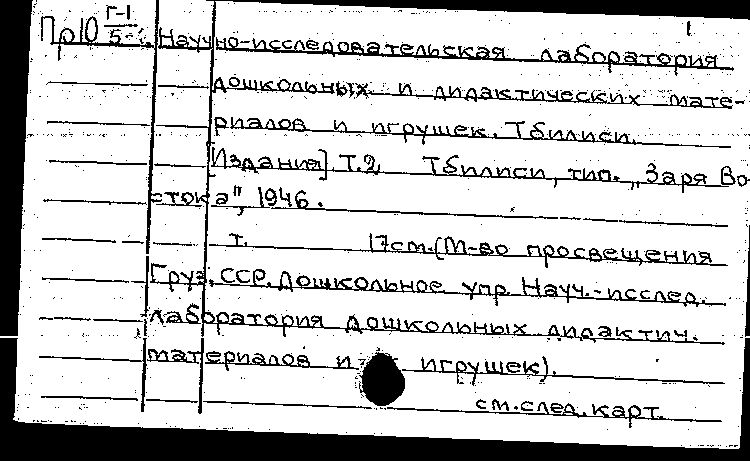 1
Пр10 Г-1
5- Научно-исследовательская лаборатория
дошкольных и дидактических мате-
риалов и игрушек. Тбилиси.
[Издания]. Т.2, Тбилиси, тип. „Заря Во
стока", 1946.
т. 17см.(М-во просвещения
Груз. ССР. Дошкольное упр. Науч.-исслед.
лаборатория дошкольных дидактич.
материалов и игрушек).
см.след.карт.